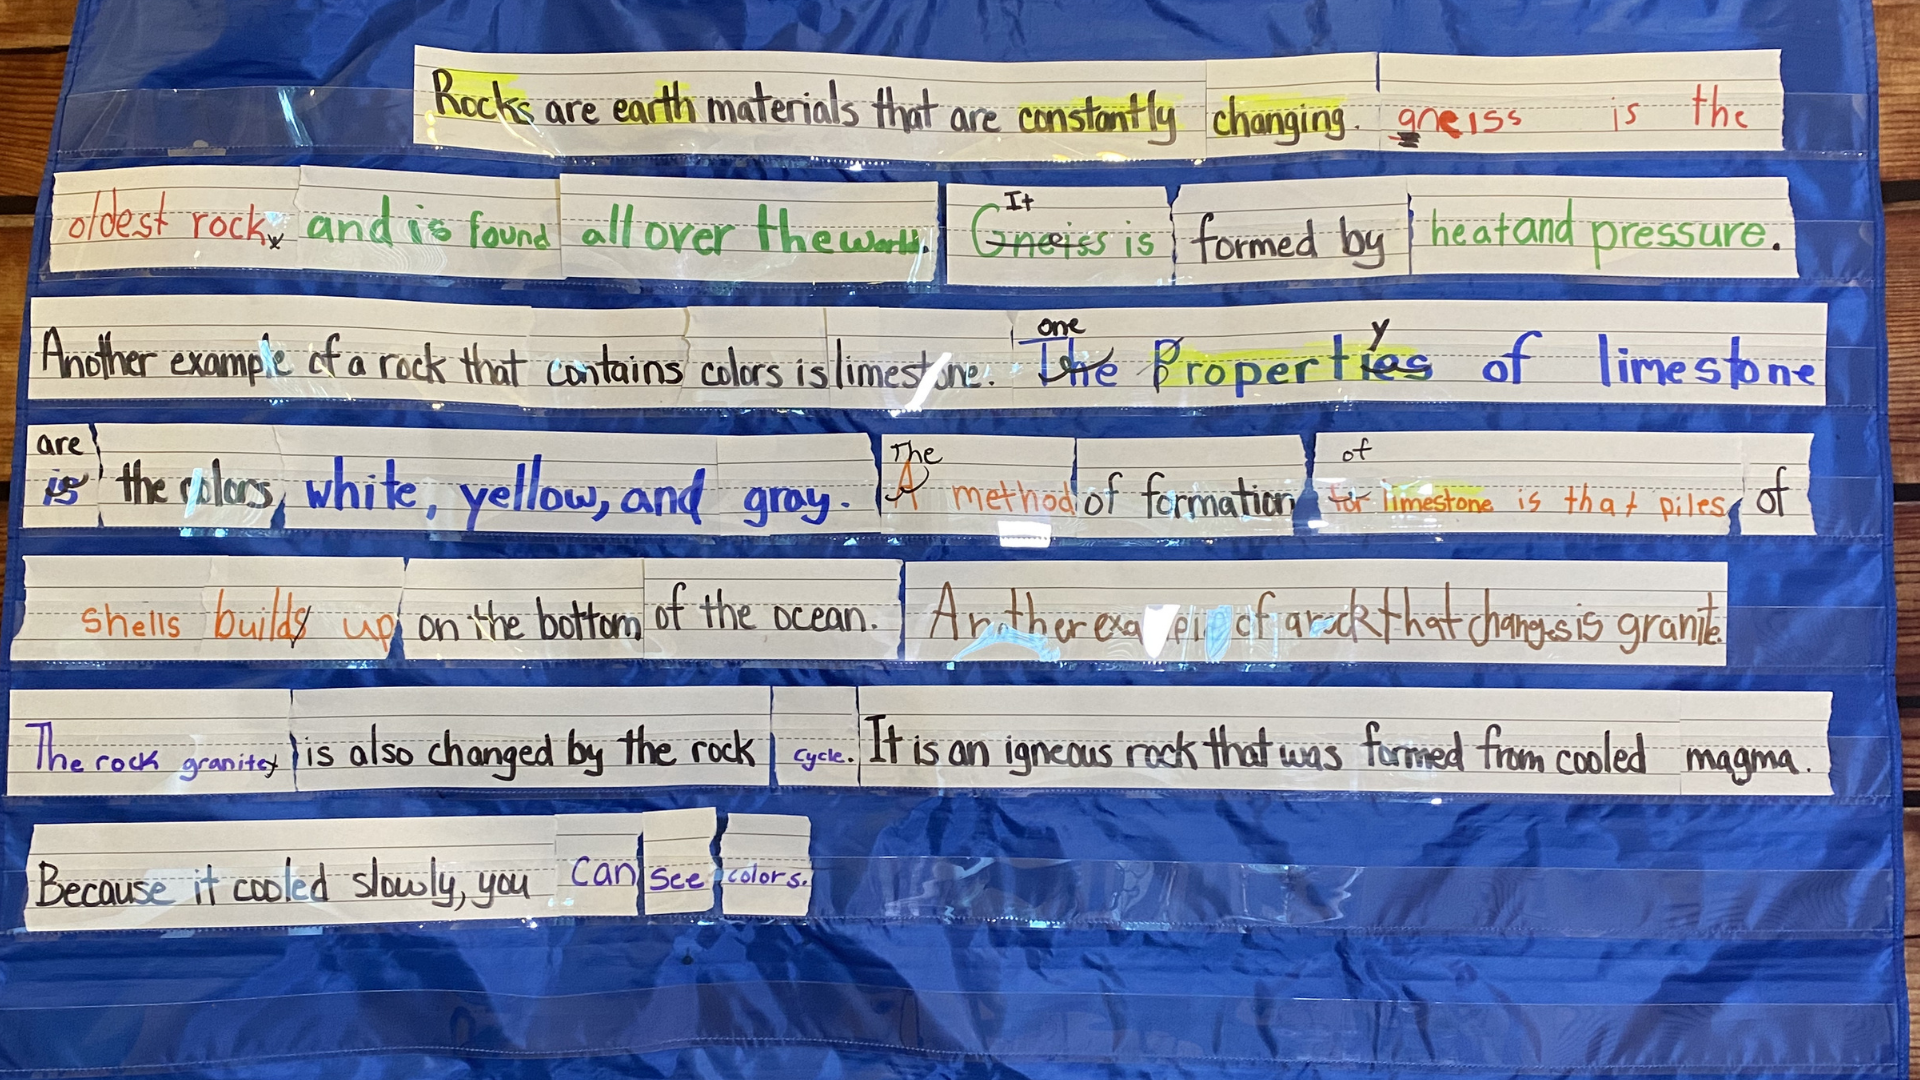 Rocks are earth materials that are constantly changing. gneiss is the
oldest rock and is found all over the world. It Gneiss is formed by heat and pressure.
Another example of a rock that contains colors is limestone. one The Properties y of limestone
are is the colors, white, yellow, and gray. The A method of formation of for limestone is that piles of
shells builds up on the bottom of the ocean. Another example of a rock that changes is granite.
The rock granite is also changed by the rock cycle. It is an igneous rock that was formed from cooled magma.
Because it cooled slowly, you can see colors.